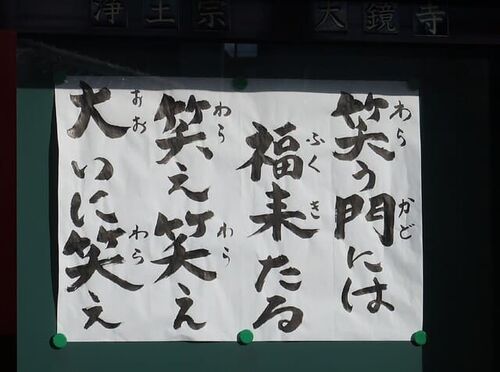 浄土宗 大鏡寺
笑う門には
わら かど
福来たる
ふく き
笑え笑え
わら わら
大いに笑え
おお わら